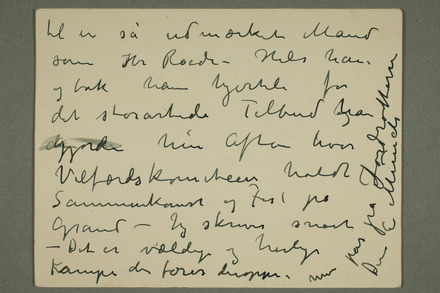 til er så udmærket Mand
som Hr Roede – Hils ham
og tak ham hjerteligt for
det storartede Tilbud han
gjorde hin Aften hvor
Velfærdskomiteen holdt
Sammenkomst og Fest på
Grand – Jeg skriver snart
– Det er vældige og herlige
Kampe der føres deroppe.
pas på Jordrotterne
Din E Munch